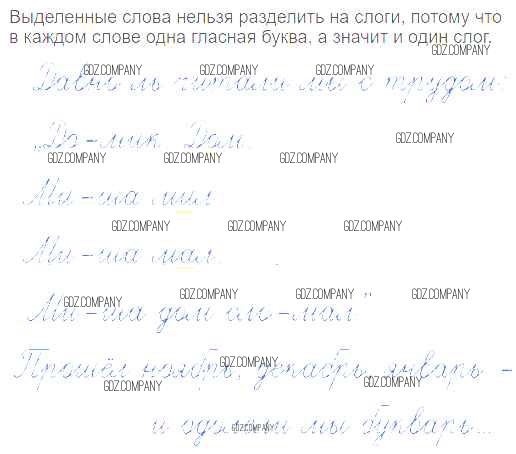 Выделенные слова нельзя разделить на слоги, потому что
в каждом слове одна гласная буква, а значит и один слог.
GDZ.COMPANY
GDZ.COMPANY GDZ.COMPANY GDZ.COMPANY
Давно ль читали мы с трудом:
„До-мик. Дом.
GDZ.COMPANY
GDZ.COMPANY GDZ.COMPANY GDZ.COMPANY
Ми-ша мил.
GDZ.COMPANY GDZ.COMPANY GDZ.COMPANY
Ми-ша мал.
GDZ.COMPANY GDZ.COMPANY GDZ.COMPANY GDZ.COMPANY
Ми-ша дом сло-мал"
Прошёл ноябрь, декабрь, январь -
GDZ.COMPANY
GDZ.COMPANY GDZ.COMPANY
и одолели мы букварь...
GDZ.COMPANY